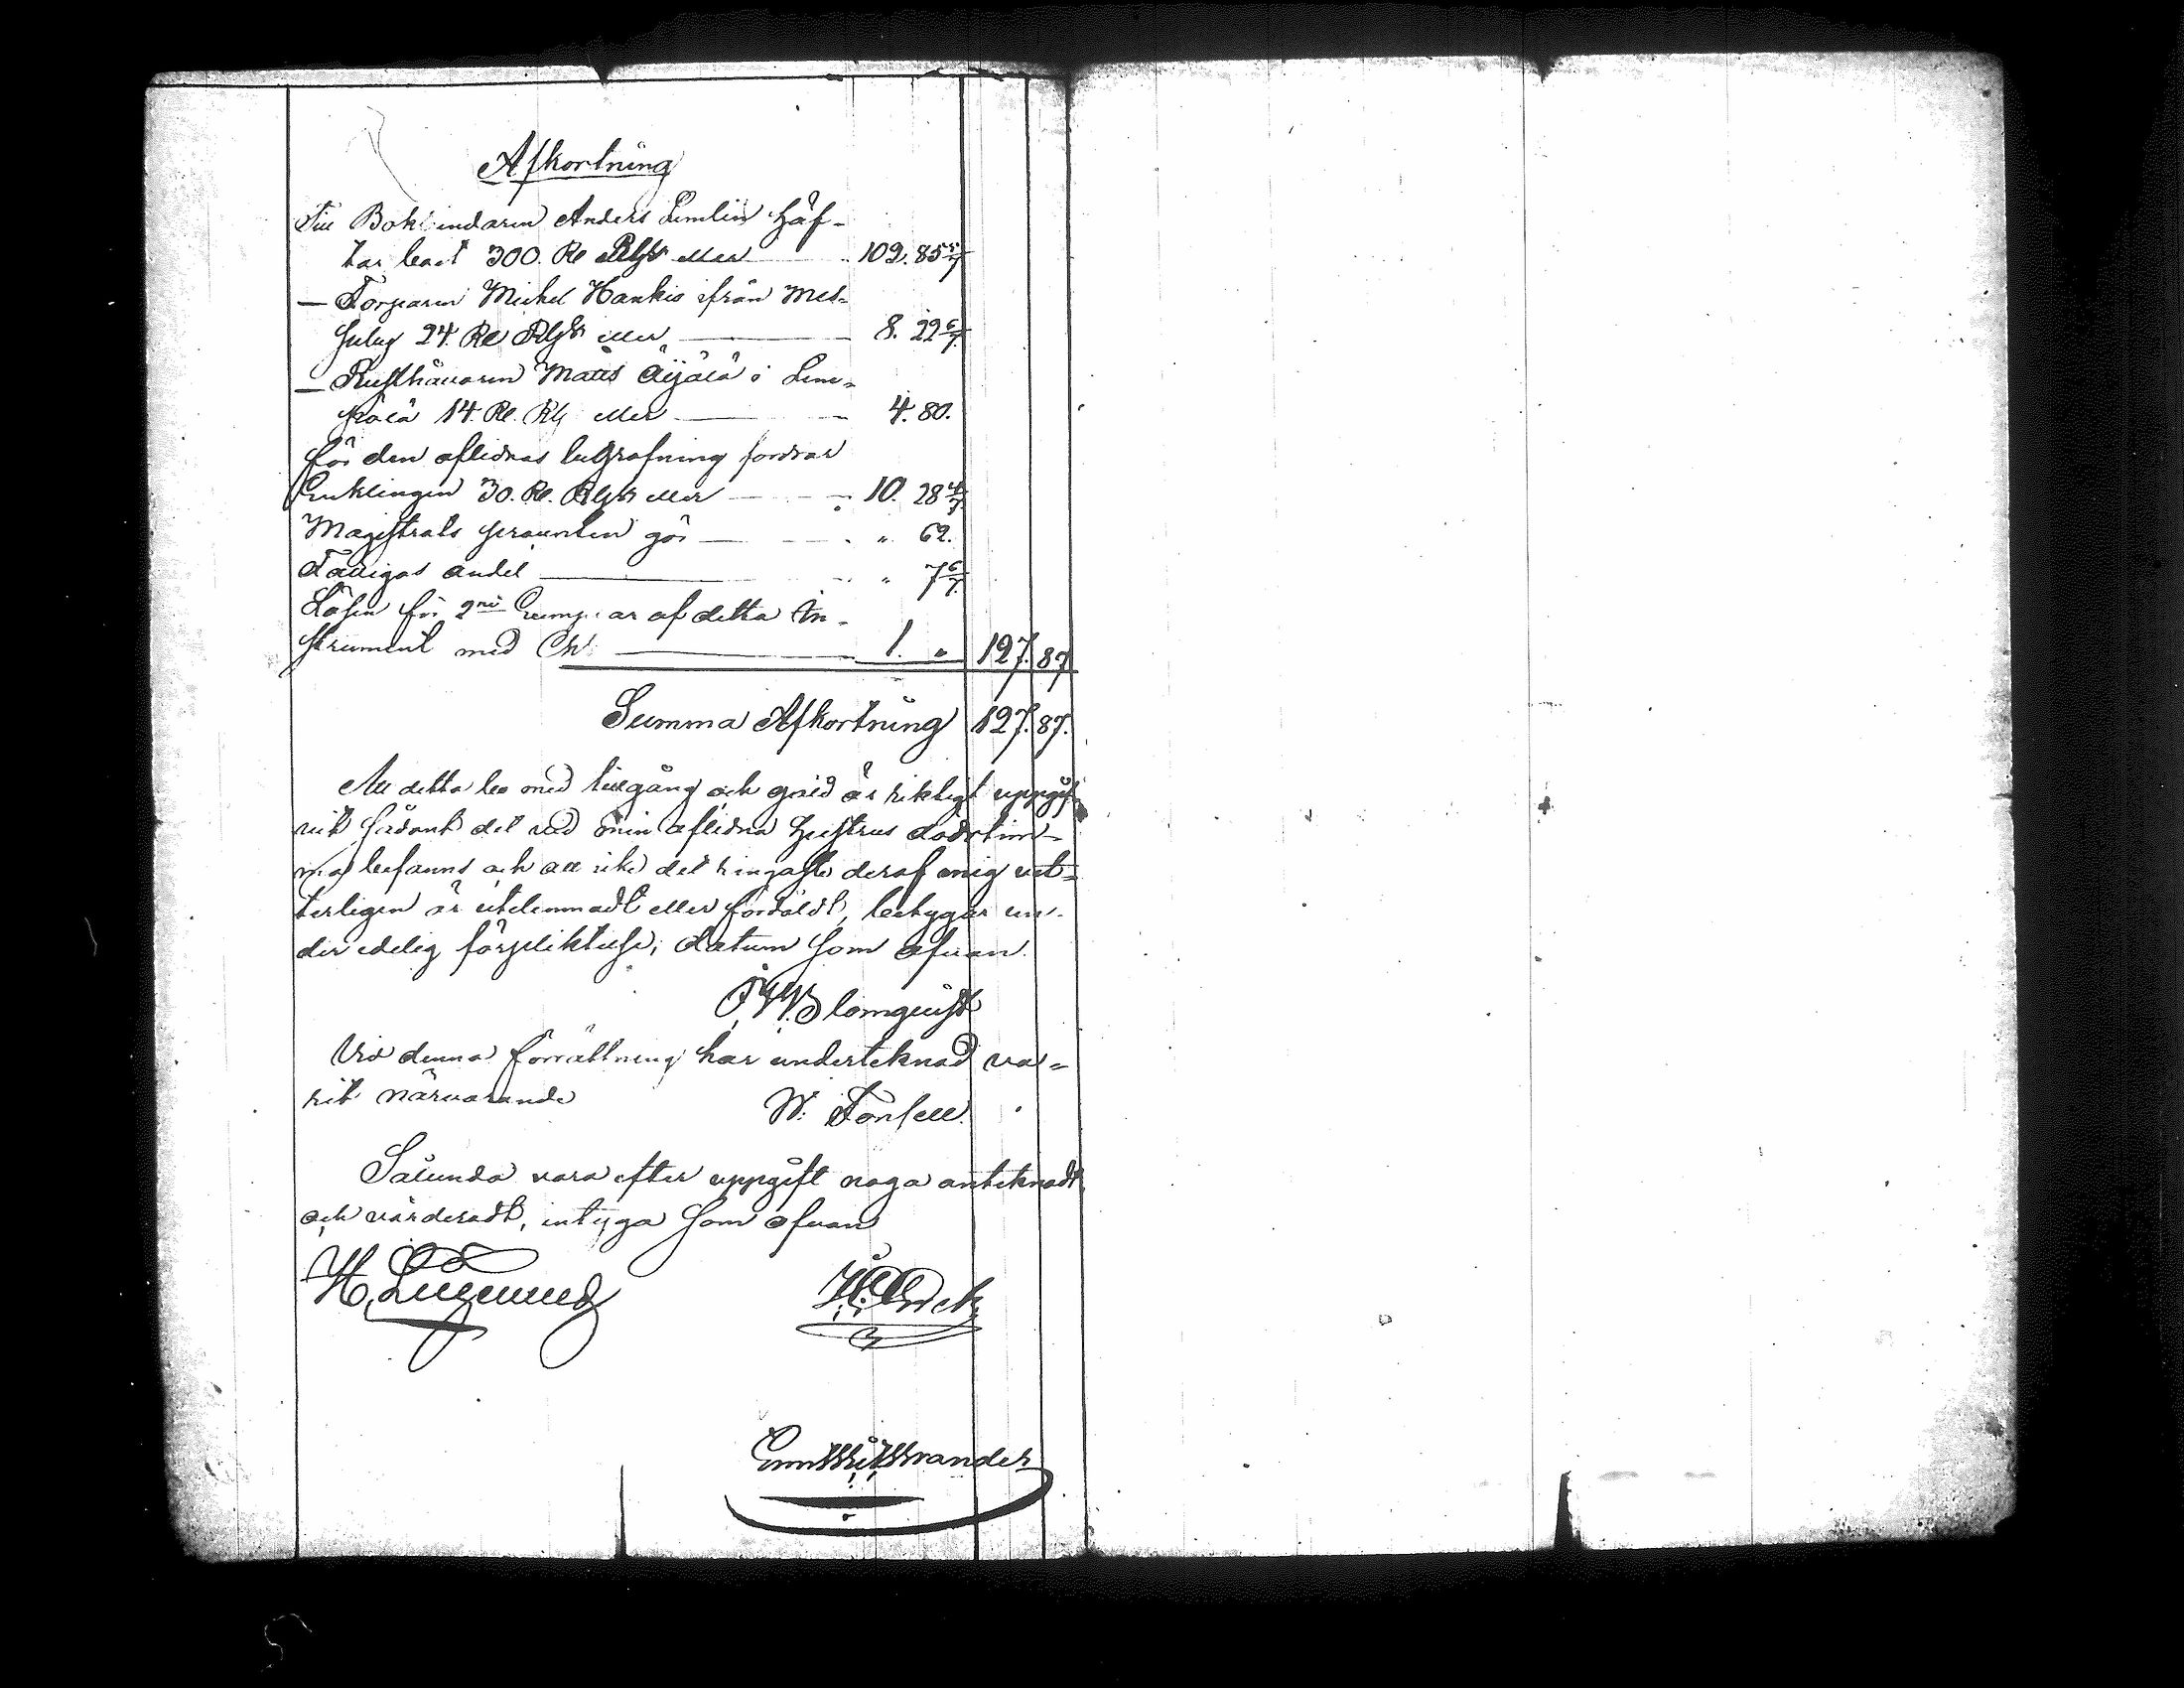 Afkortning
Till Bokbindaren Anders Limlin häf-
tar ben:t 300. Rd Rgs eller 102. 85 5/7
— Torparen Michel Hankis ifrån Mes-
juby 24. Rd Rgs eller 8. 22 6/7
— Rusthållaren Matts Äijälä i Lem-
päälä 14. Rd. Rg eller 4. 80.
för den aflidnas begrafning fordrar
Enklingen 30. Rd. Rgs eller 10. 28 4/7
Magistrats prosenten gör " 62.
Fattigas andel " 7 6/7
Lösen för 2ne Exemplar af detta In-
strument med Ch: 1. " 127. 87
Summa Afkortning 127. 87.
Att detta bo med tillgång och gäld är riktigt uppgif-
vit sådant det vid min aflidna Hustrus dödstim-
ma befanns och att icke det ringaste deraf mig vet-
terligen är utelemnadt eller fördöldt, betygar un-
der edelig förpliktelse; datum som ofvan.
Blomquist
Vid denna förrättning har undertecknad va-
rit närvarande
W. Forsell.
Sålunda vara efter uppgift noga antecknadt
och värderadt, intyga som ofvan